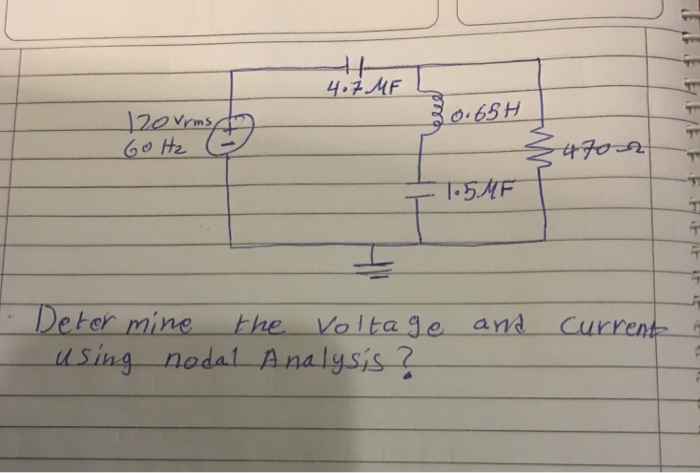 4.7 MF
120 Vrms
0.65H
60 Hz
+
470 Ω
-
1.5 MF
Determine the Voltage and Current
using nodal Analysis?